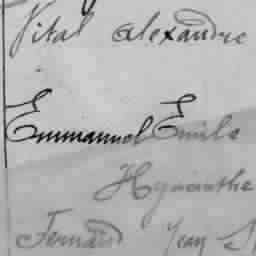 Vital Alexandre
Emmanuel Emile
Hyacinthe
Fernand Jean